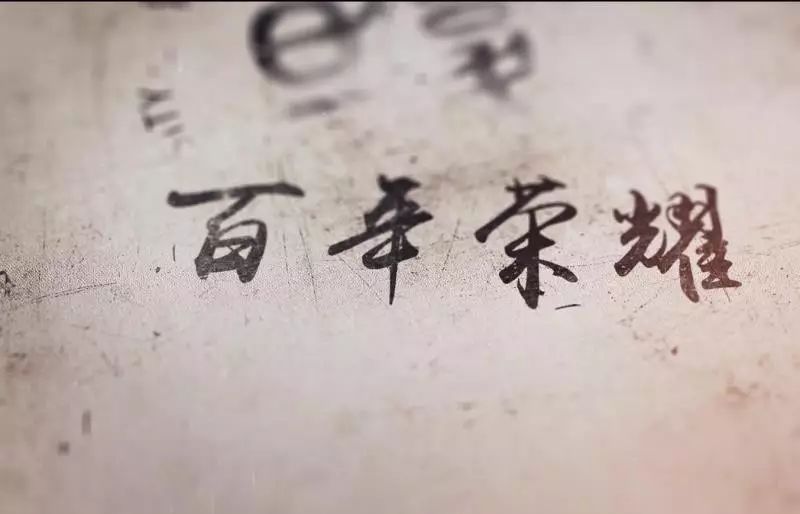 百年荣耀